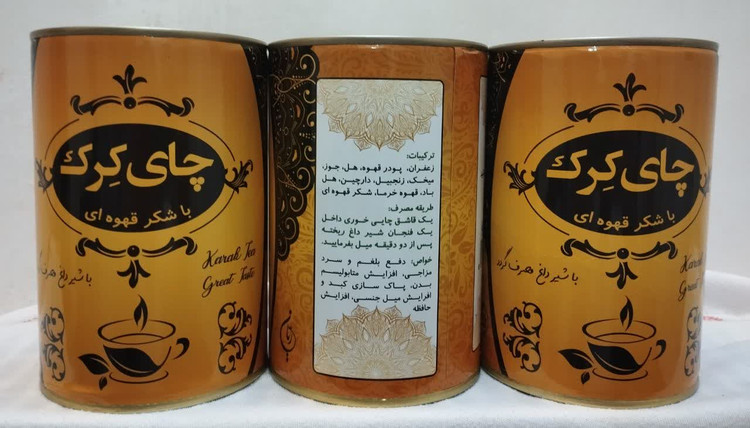 چای کرک
با شکر قهوه ای
Karak Tea
Great Taste
با شیر داغ صرف گردد
ترکیبات:
زعفران، پودر قهوه، هل، جوز،
میخک، زنجبیل، دارچین، هل
باد، قهوه خرما، شکر قهوه ای
طریقه مصرف:
یک قاشق چایی خوری داخل
یک فنجان شیر داغ ریخته
پس از دو دقیقه میل بفرمایید.
خواص: دفع بلغم و سرد
مزاجی، افزایش متابولیسم
بدن، پاک سازی کبد و
افزایش میل جنسی، افزایش
حافظه
چای کرک
با شکر قهوه ای
Karak
Great
با شیر داغ صرف گردد